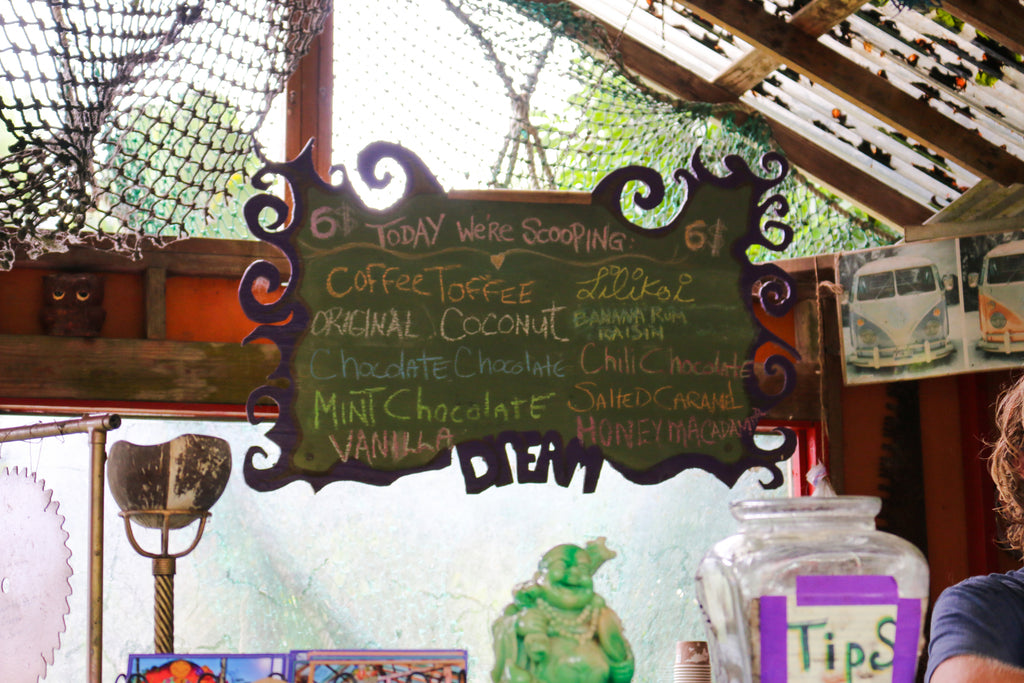 6$ TODAY WE'RE SCOOPING: 6$
COFFEE TOFFEE
ORIGINAL COCONUT
CHOCOLATE CHOCOLATE
MINT CHOCOLATE
VANILLA
LILIKOI
BANANA RUM
RAISIN
CHILI CHOCOLATE
SALTED CARAMEL
HONEY MACADAMIA
DREAM
TipS